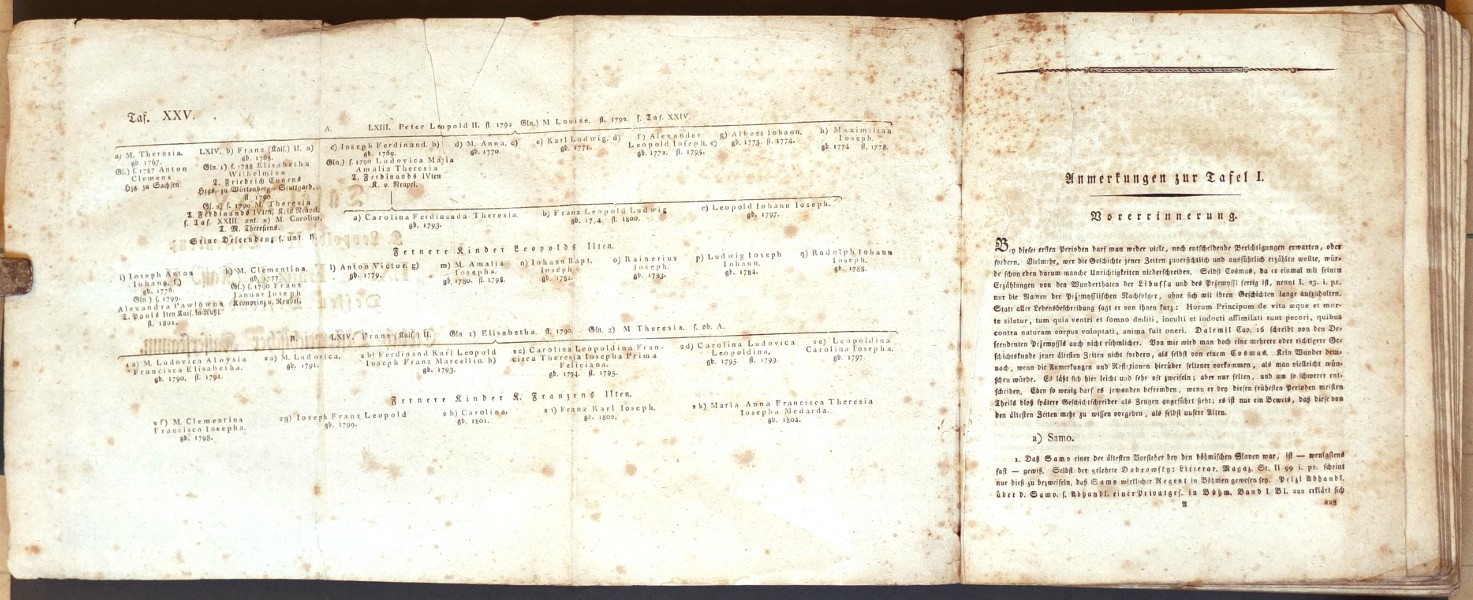 Taf. XXV.
A. LXIII. Peter Leopold II. st. 1792 Gln.) M Louise. st. 1792. s. Taf. XXIV.
a) M. Theresia.
gb. 1767.
Gl.) s. 1787 Anton
Clemens
Hzg. zu Sachsen.
LXIV. b) Franz (Kais.) II. a)
gb. 1768.
Gln. 1) s. 1788 Elisabetha
Wilhelmina
T. Friedrich Eugens
Hzgs. zu Würtenberg-Stuttgard.
st. 1790.
Gl. 2) s. 1790 M. Theresia
T. Ferdinands IVten, K. in Neapel.
s. Taf. XXIII. ant. a) M. Carolina,
T. M. Theresiens.
Seine Descendenz s. unt. B.
c) Ioseph Ferdinand. b)
gb. 1769.
Gln.) s. 1790 Ludovica Maria
Amalia Theresia
T. Ferdinands IVten
K. v. Neapel.
d) M. Anna. c)
gb. 1770.
e) Karl Ludwig. d)
gb. 1771.
f) Alexander
Leopold Ioseph. e)
gb. 1772. st. 1795.
g) Albert Iohann.
gb. 1773. st. 1774.
h) Maximilian
Ioseph.
gb. 1774 st. 1778.
a) Carolina Ferdinanda Theresia.
gb. 1793.
b) Franz Leopold Ludwig
gb. 1794. st. 1800.
c) Leopold Iohann Ioseph.
gb. 1797.
Fernere Kinder Leopolds IIten.
i) Ioseph Anton
Iohann. f)
gb. 1776.
Gln.) s. 1799.
Alexandra Pawlowna
T. Pauls Iten Kais. in Rußl.
st. 1801.
k) M. Clementina.
gb. 1777.
Gl.) s. 1790 Franz
Ianuar Ioseph
Kronprinz v. Neapel.
l) Anton Victor. g)
gb. 1779.
m) M. Amalia
Iosepha.
gb. 1780. st. 1798.
n) Iohann Bapt.
Ioseph
gb. 1782.
o) Rainerius
Ioseph.
gb. 1783.
p) Ludwig Ioseph
Iohann.
gb. 1784.
q) Rudolph Iohann
Ioseph.
gb. 1788.
B. LXIV. Franz (Kais.) II. Gln 1) Elisabetha. st. 1790. Gln. 2) M Theresia. s. ob. A.
1a) M. Ludovica Aloysia
Francisca Elisabetha.
gb. 1790. st. 1791.
2a) M. Ludovica.
gb. 1791.
2b) Ferdinand Karl Leopold
Ioseph Franz Marcellin. h)
gb. 1793.
2c) Carolina Leopoldina Fran-
cisca Theresia Iosepha Prima
Feliciana.
gb. 1794. st. 1795.
2d) Carolina Ludovica
Leopoldina.
gb. 1795. st. 1799.
2e) Leopoldina
Carolina Iosepha.
gb. 1797.
Fernere Kinder K. Franzens IIten.
2f) M. Clementina
Francisca Iosepha.
gb. 1798.
2g) Ioseph Franz Leopold
gb. 1799.
2h) Carolina.
gb. 1801.
2i) Franz Karl Ioseph.
gb. 1802.
2k) Maria Anna Francisca Theresia
Iosepha Medarda.
gb. 1804.
Anmerkungen zur Tafel I.
Vorerrinnerung.
Bey diesen ersten Perioden darf man weder viele, noch entscheidende Berichtigungen erwarten, oder
fordern. Vielmehr, wer die Geschichte jener Zeiten zuversichtlich und ausführlich erzählen wollte, wür-
de schon eben darum manche Unrichtigkeiten niederschreiben. Selbst Cosmas, da er einmal mit seinen
Erzählungen von den Wunderthaten der Libussa und des Przemysl fertig ist, nennt I. 23. i. pr.
nur die Namen der Przemyslischen Nachfolger, ohne sich mit ihren Geschichten lange aufzuhalten.
Statt aller Lebensbeschreibung sagt er von ihnen kurz: Horum Principum de vita æque et mor-
te siletur, tum quia ventri et somno dediti, inculti et indocti assimilati sunt pecori, quibus
contra naturam corpus voluptati, anima fuit oneri. Dalemil Cap. 16 schreibt von den De-
scendenten Przemysls auch nicht rühmlicher. Von mir wird man doch eine mehrere oder richtigere Ge-
schichtskunde jener ältesten Zeiten nicht fordern, als selbst von einem Cosmas. Kein Wunder dem-
nach, wenn die Anmerkungen und Reflexionen hierüber seltener vorkommen, als man vielleicht wün-
schen würde. Es läßt sich hier leicht und sehr oft zweifeln; aber nur selten, und um so schwerer ent-
scheiden. Eben so wenig darf es jemanden befremden, wenn er bey diesen frühesten Perioden meisten
Theils blos spätere Geschichtschreiber als Zeugen angeführt sieht; es ist nur ein Beweis, daß diese von
den ältesten Zeiten mehr zu wissen vorgeben, als selbst unsere Alten.
a) Samo.
1. Daß Samo einer der ältesten Vorsteher bey den böhmischen Slaven war, ist — wenigstens
fast — gewiß. Selbst der gelehrte Dobrowsky: Litterar. Magaz. St. II 99 i. pr. scheint
nur dieß zu bezweifeln, daß Samo wirklicher Regent in Böhmen gewesen sey. Pelzl Abhandl.
über d. Samo. s. Abhandl. einer Privatges. in Böhm. Band I. Bl. erklärt sich
A
aus